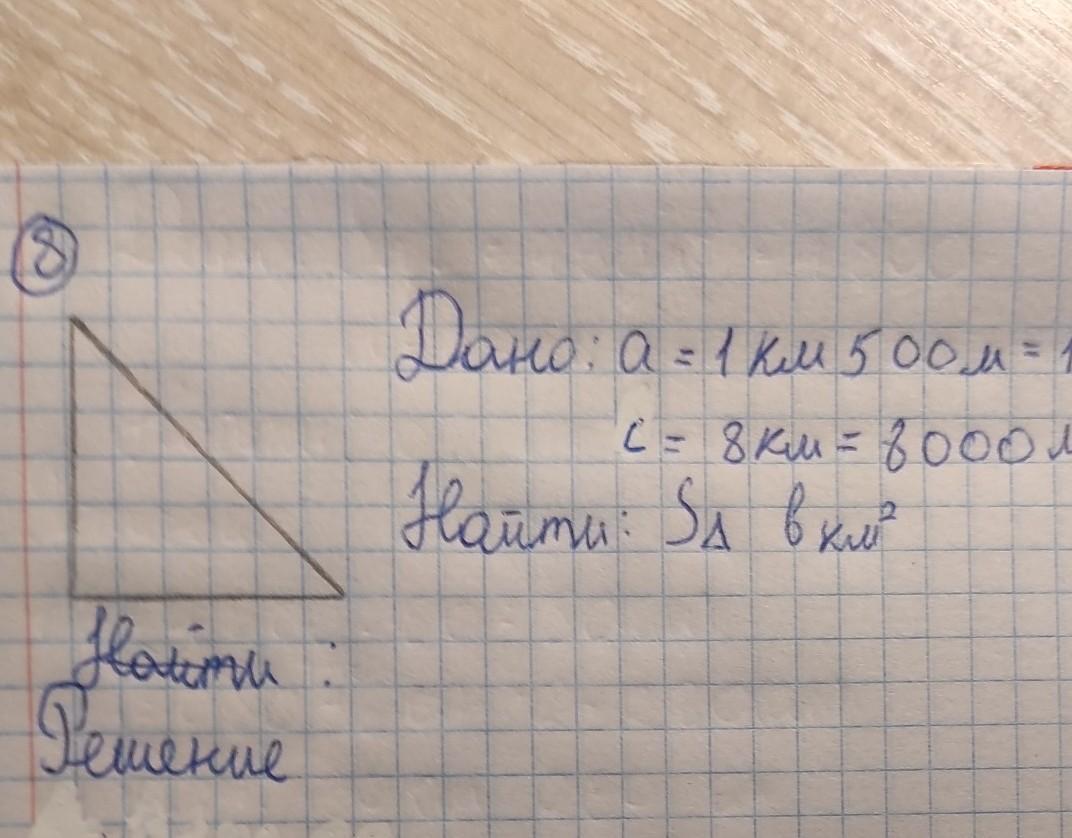 8
Дано: a = 1 км 500 м = 1
c = 8 км = 8000 м
Найти: S∆ в км²
Найти :
Решение